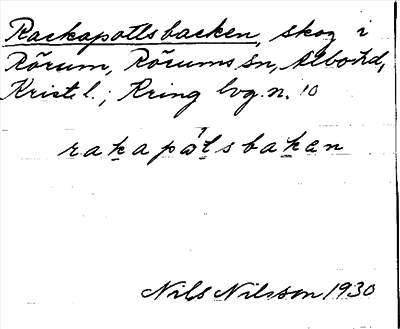 Rackapottsbacken, skog i
Rörum, Rörums sn, Albo hd,
Krist. l.; Kring bvg.n. 10
rakapåtsbakan
Nils Nilsson 1930